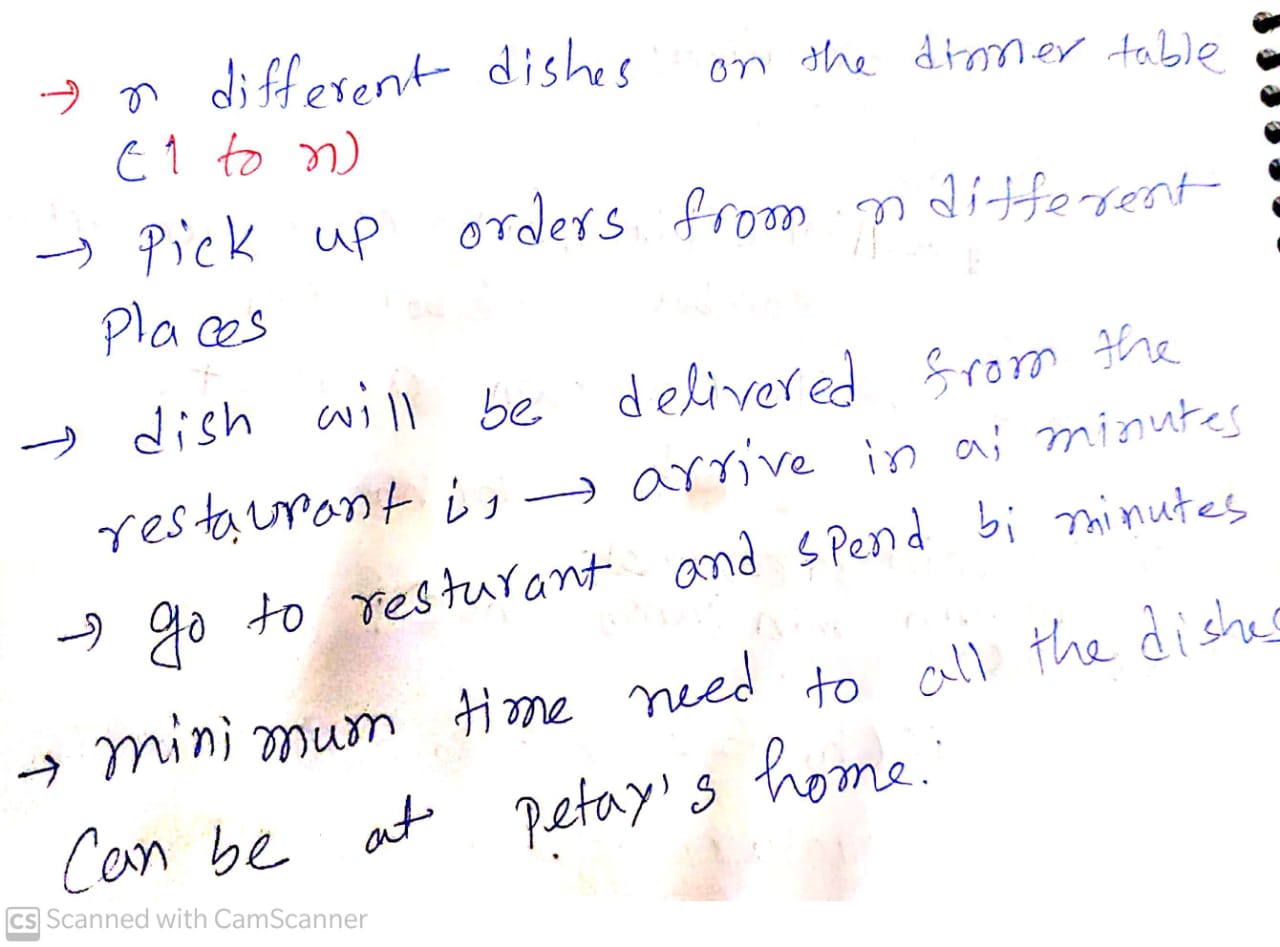 → n different dishes on the dinner table
(1 to n)
→ Pick up orders from n different
Places
→ dish will be delivered from the
restaurant i, → arrive in ai minutes
→ go to resturant and spend bi minutes
→ minimum time need to all the dishes
Can be at petay's home.
CS Scanned with CamScanner